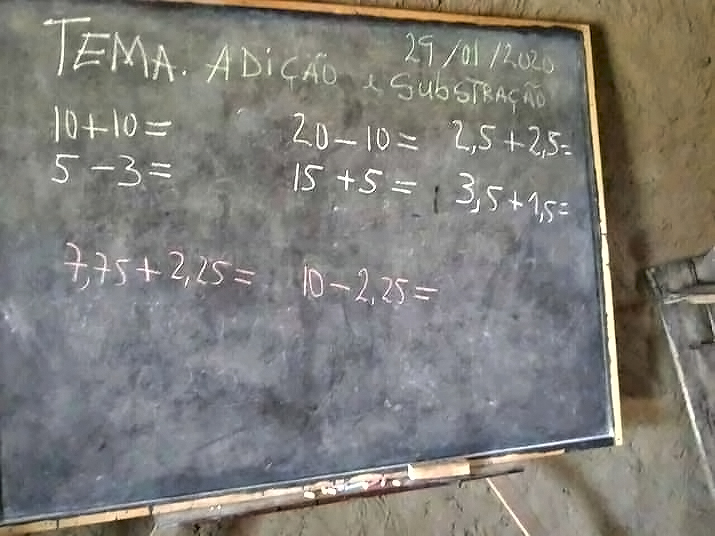 TEMA. ADIÇÃO e SUBSTRAÇÃO
29/01/2020
10+10= 20-10= 2,5+2,5=
5-3= 15+5= 3,5+1,5=
7,75+2,25= 10-2,25=